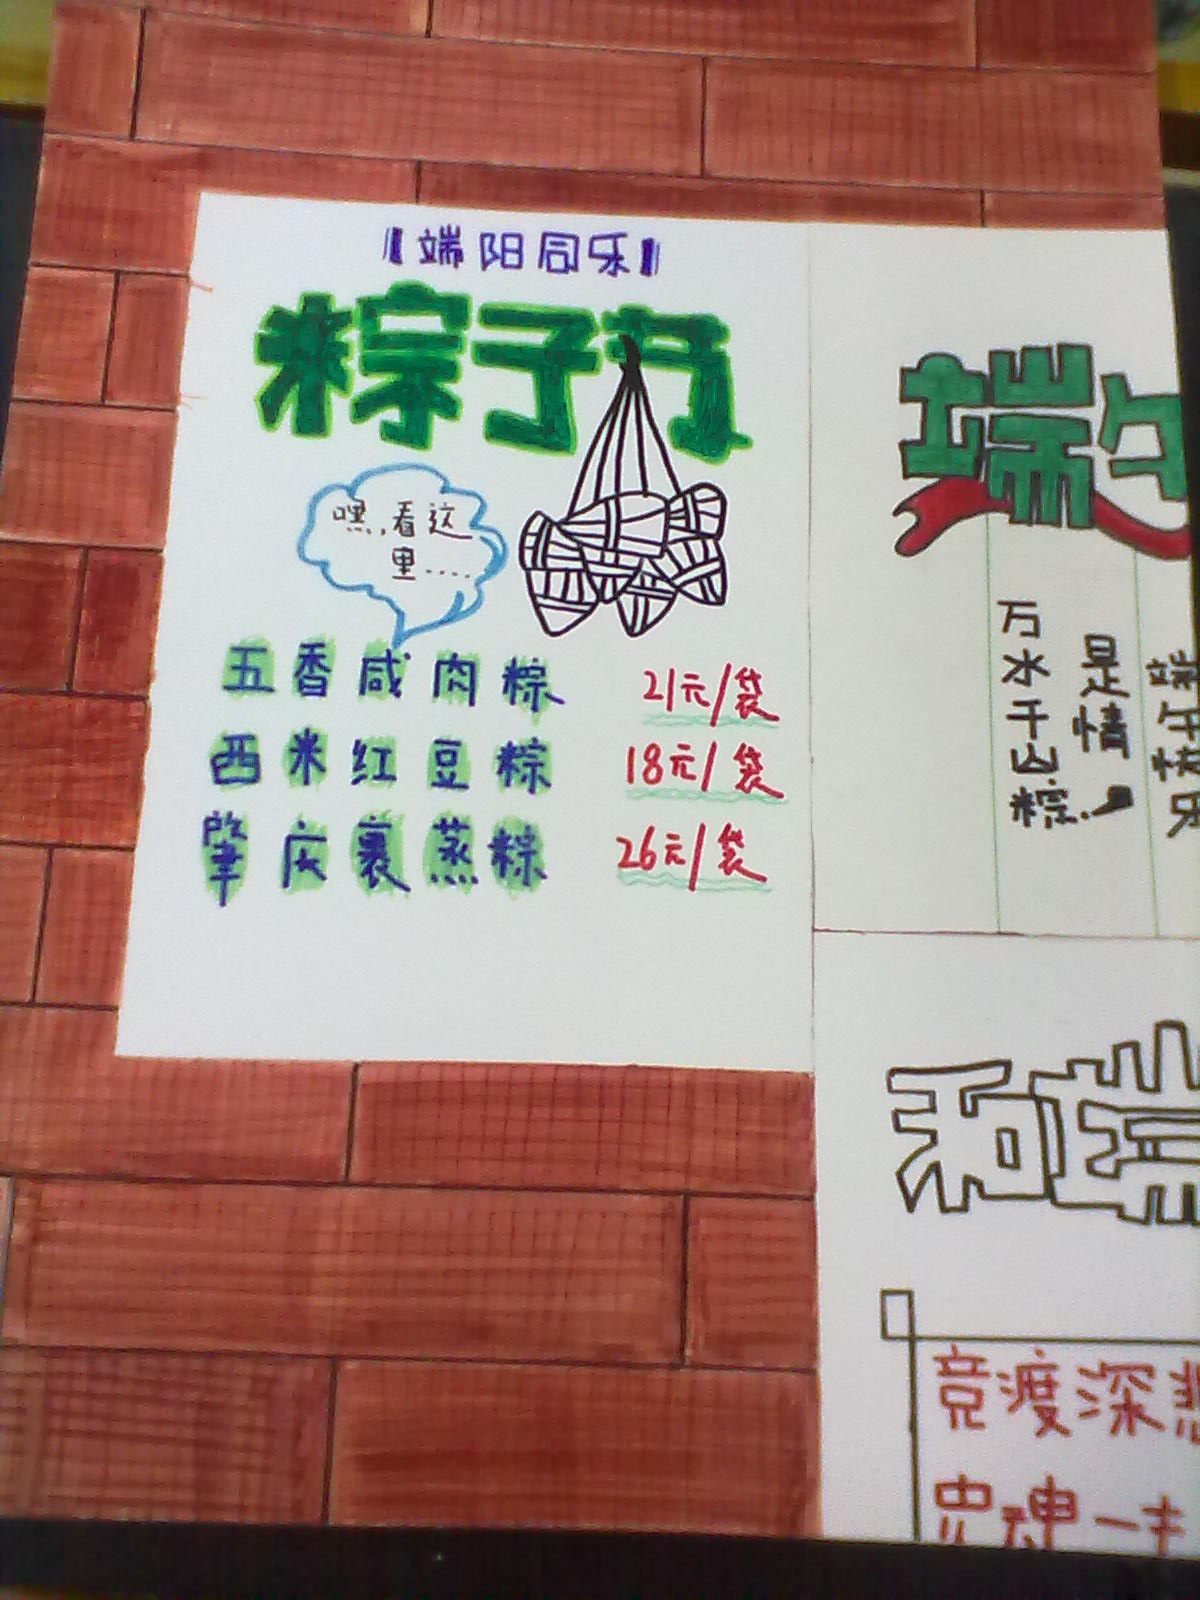 端阳同乐
粽子节
嘿,看这
里....
五香咸肉粽 21元/袋
西米红豆粽 18元/袋
肇庆裹蒸粽 26元/袋
端午
万水千山粽
是情
端午快乐
和端
竞渡深悲
忠魂一